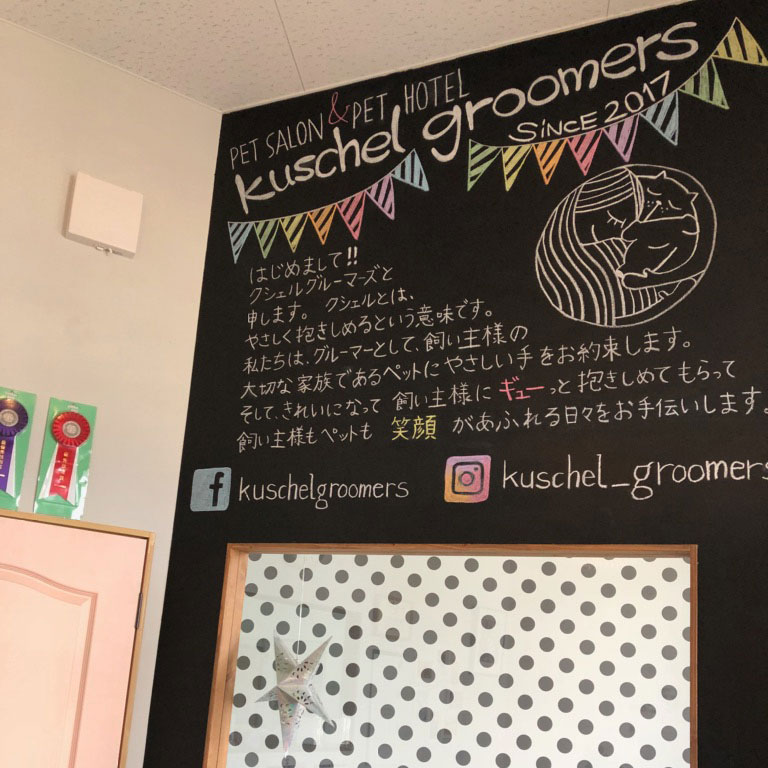 PET SALON & PET HOTEL
kuschel groomers
SINCE 2017
はじめまして!!
クシェルグルーマーズと
申します。 クシェルとは、
やさしく抱きしめるという意味です。
私たちは、グルーマーとして、飼い主様の
大切な家族であるペットにやさしい手をお約束します。
そして、きれいになって 飼い主様に ギューっと 抱きしめてもらって
飼い主様もペットも 笑顔 があふれる日々をお手伝いします。
f kuschelgroomers
kuschel_groomers